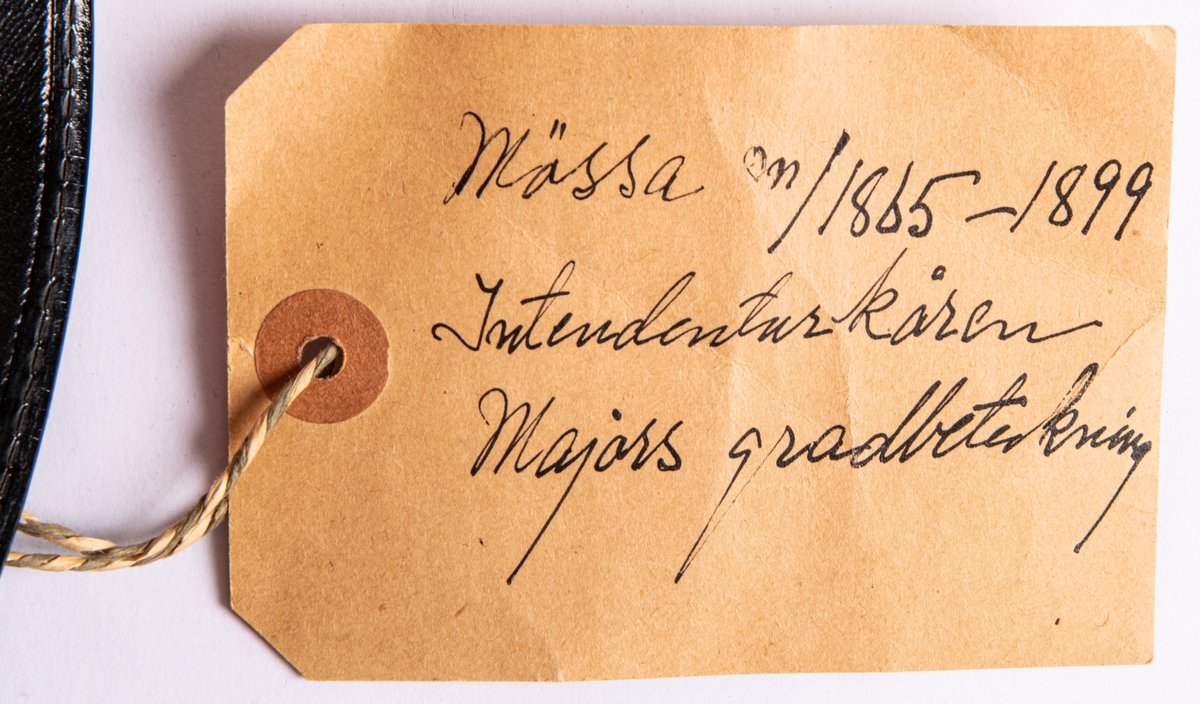 Mössa m/1865-1899
Intendenturkåren
Majors gradbeteckning